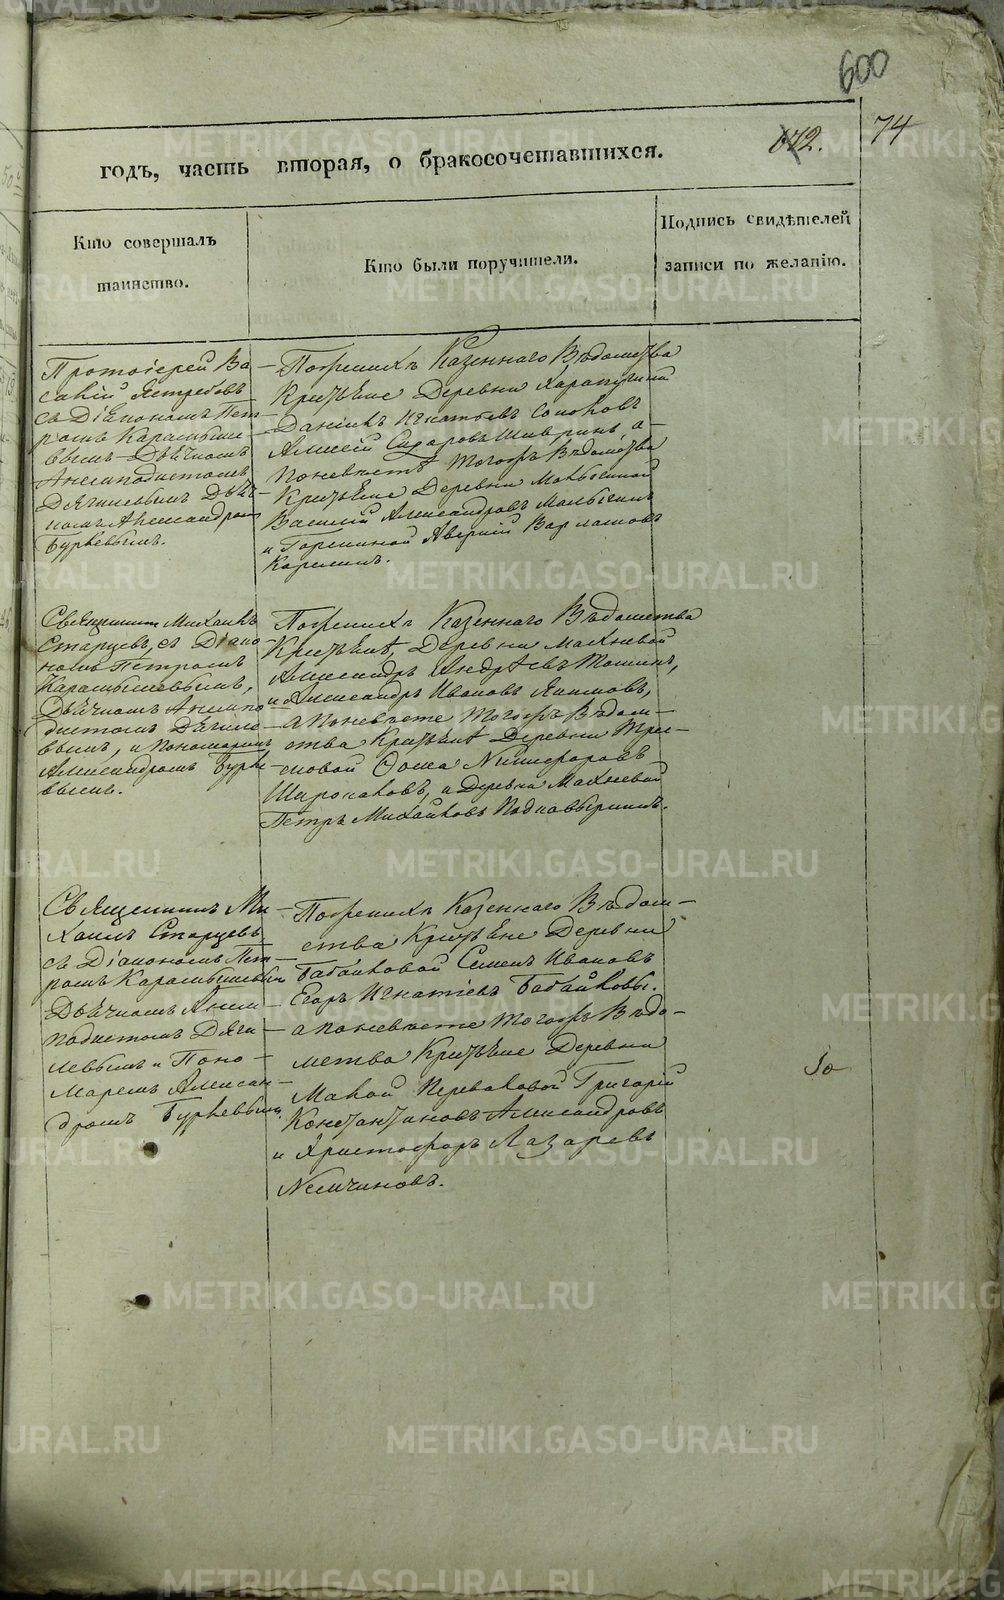 600
642. 74
годъ, часть вторая, о бракосочетавшихся.
Кто совершалъ
таинство.
Кто были поручители.
Подпись свидѣтелей
записи по желанію.
Протоіерей Ва-
силій Ястребовъ
съ Діакономъ Пет-
ромъ Карамыше-
вымъ Дьячкомъ
Анемподистомъ
Дягилевымъ Дьяч-
комъ Александромъ
Бурневымъ.
По женихѣ Казеннаго Вѣдомства
Крестьяне Деревни
Даніилъ Игнатьевъ
Алексей Сидоровъ а
по невѣстѣ тогожъ Вѣдомства
Крестьяне Деревни
Василій Александровъ
и Аверкій Варламовъ
Карелинъ.
Священникъ Михаилъ
Старцевъ, съ Діако-
номъ Петромъ
Карамышевымъ,
Дьячкомъ Анемпо-
дистомъ Дягиле-
вымъ, и Пономаремъ
Александромъ Бурне-
вымъ.
По женихѣ Казеннаго Вѣдомства
Крестьянѣ, Деревни Махневой
Александръ Андрѣевъ
и Александръ Ивановъ Якимовъ,
а по невѣсте тогожъ Вѣдом-
ства Крестьянѣ Деревни
Фома Никифоровъ
а Деревни Махневой
Петръ Михайловъ
Священникъ Ми-
хаилъ Старцевъ
съ Діакономъ Пет-
ромъ Карамышевымъ
Дьячкомъ Анем-
подистомъ Дяги-
левымъ и Поно-
маремъ Алексан-
дромъ Бурневымъ.
По женихѣ Казеннаго Вѣдом-
ства Крестьяне Деревни
Бабайловой Семенъ Ивановъ
Егоръ Игнатіевъ Бабайловы.
а по невѣсте тогожъ Вѣдо-
мства Крестьяне Деревни
Григорій
Константиновъ Александровъ
и Христофоръ Лазаревъ
Немчиновъ.
METRIKI.GASO-URAL.RU